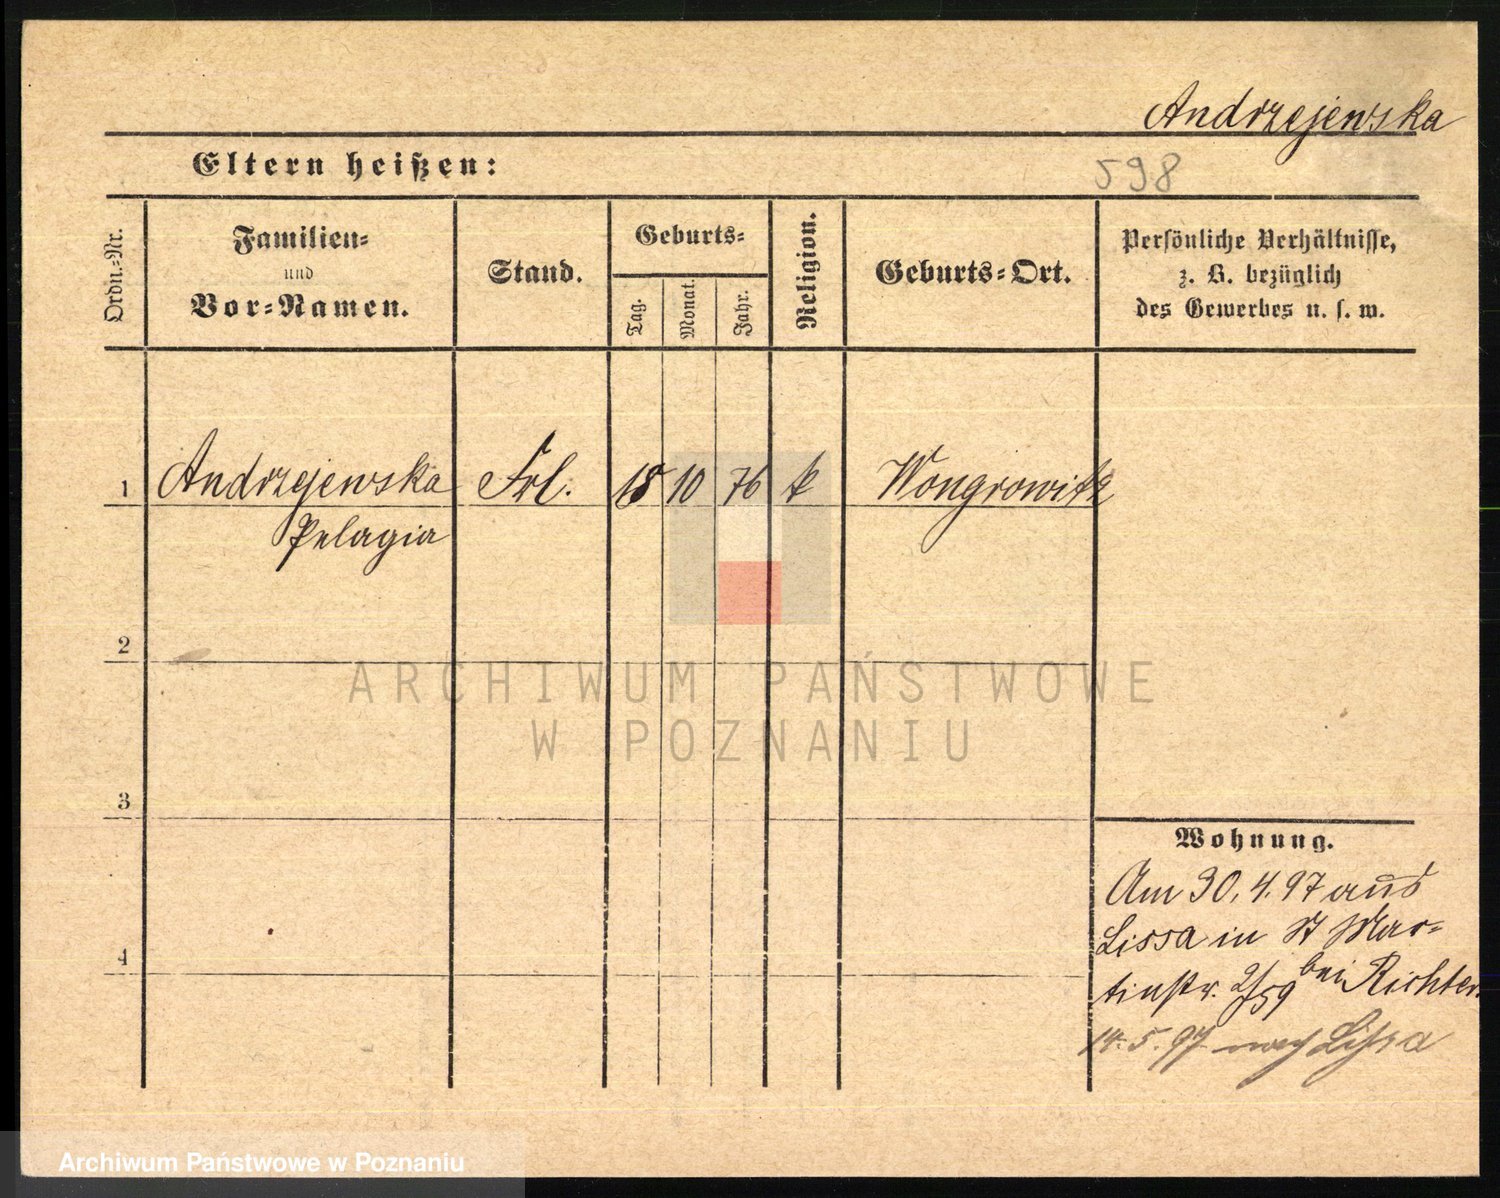 Andrzejewska
Eltern heißen:
598
Ordn.-Nr.
Familien-
und
Vor-Namen.
Stand.
Geburts-
Tag.
Monat.
Jahr.
Religion.
Geburts-Ort.
Persönliche Verhältnisse,
z. B. bezüglich
des Gewerbes u. s. w.
1
Andrzejewska
Pelagia
Frl.
10
76
k
Wongrowitz
2
ARCHIWUM PAŃSTWOWE
W POZNANIU
3
4
Wohnung.
Am 30.4.97 aus
Lissa in St Mar-
tinstr. 2/59 bei Richter.
14.5.97 nach Lissa
Archiwum Państwowe w Poznaniu